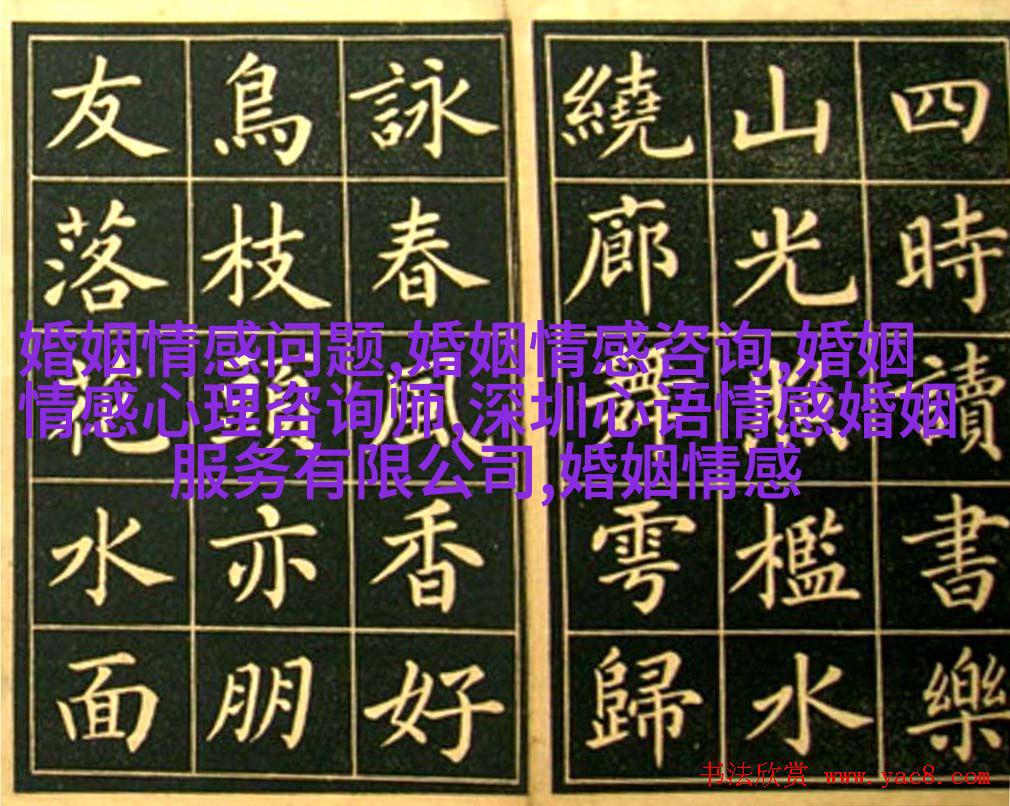 四時讀書樂
山光照檻水
繞廊舞雩歸
詠春風香好
鳥枝頭亦朋
友落花水面
婚姻情感问题,婚姻情感咨询,婚姻
情感心理咨询师,深圳心语情感婚姻
服务有限公司,婚姻情感
书法欣赏 www.yac8.com